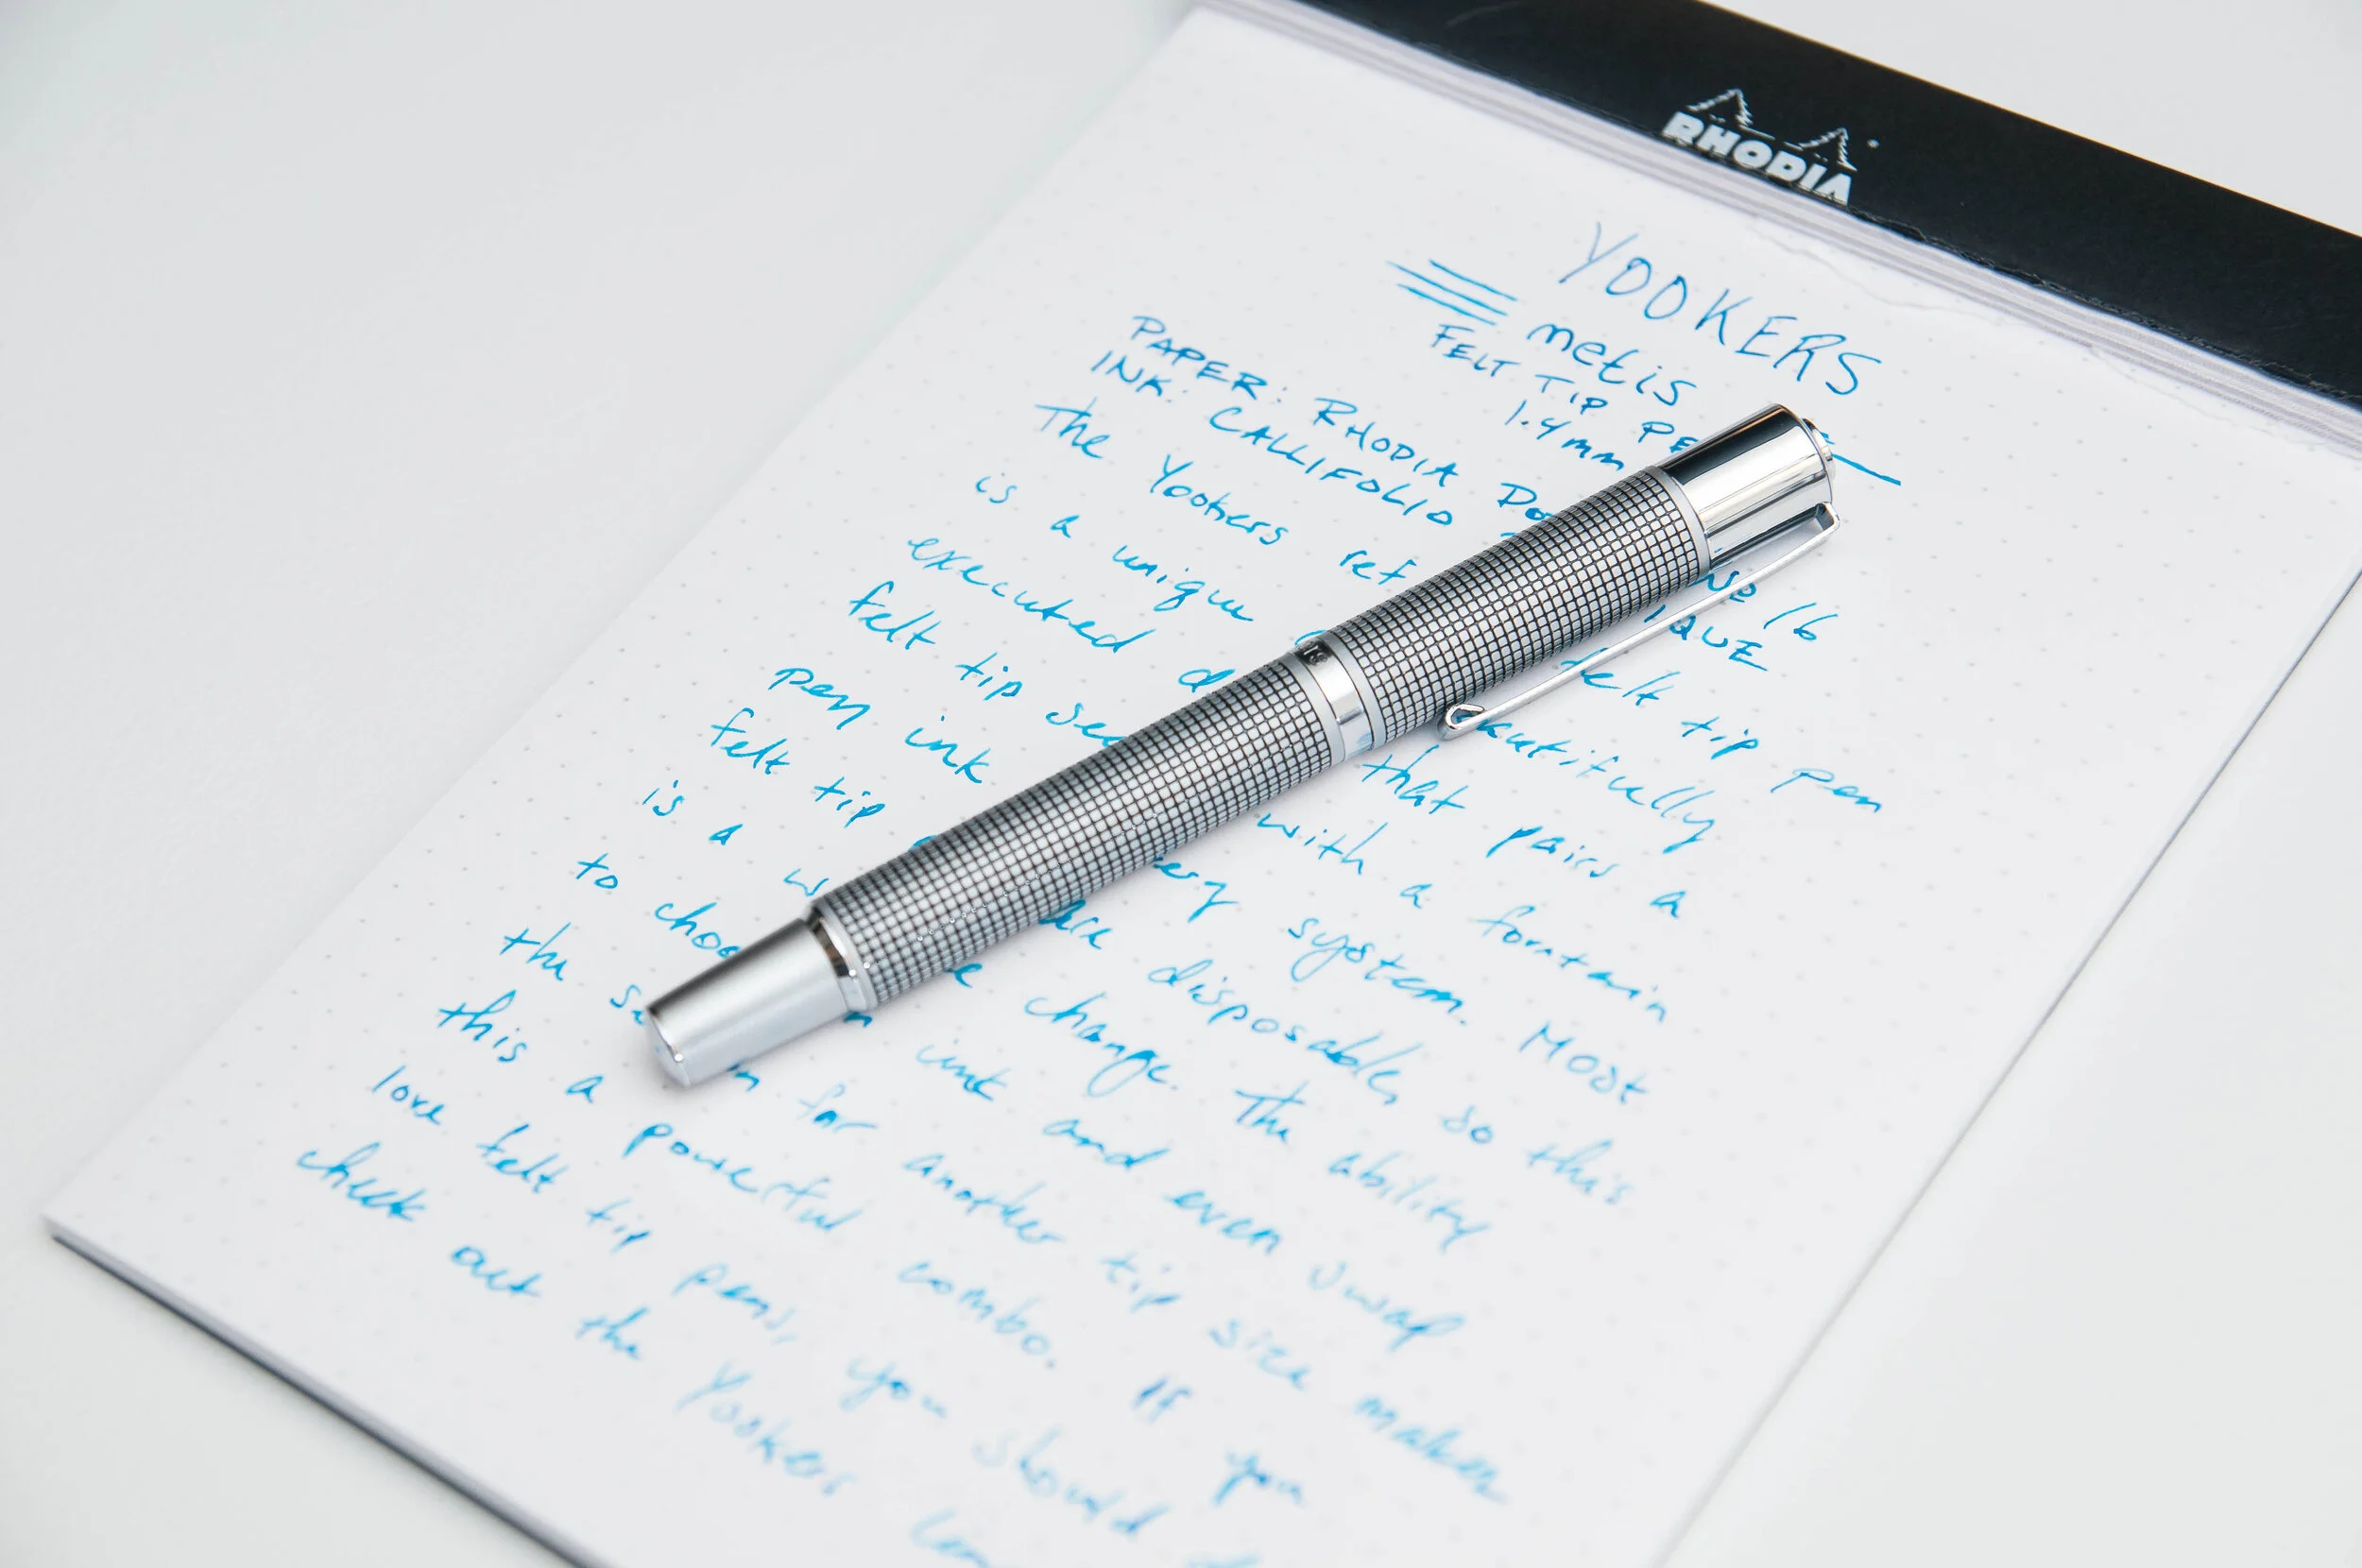 RHODIA
YOOKERS
metis
FELT TIP PE
1.4mm
PAPER: RHODIA Do No 16
INK: CALLIFOLIO IQUE
The Yookers ref felt tip pen
is a unique beautifully
executed that pairs a
felt tip with a fountain
pen ink system. Most
felt tip disposable, so this
is a change. The ability
to ink and even swap
the for another tip size makes
this a powerful combo. If you
love felt tip pens, you should
check out the Yookers